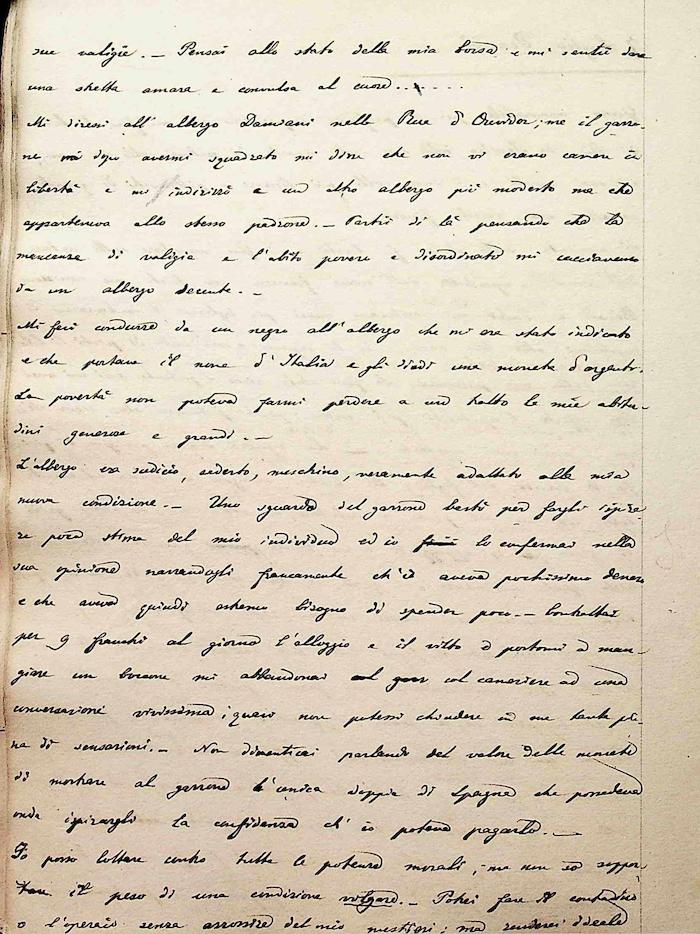 sue valigie. — Pensai allo stato della mia borsa e mi sentii dare
una stretta amara e convulsa al cuore. . . . . .
Mi diressi all' albergo Damiani nella Rue d'Ouvidor; ma il garzo-
ne dopo avermi squadrato mi disse che non vi erano camere in
libertà e mi indirizzò a un altro albergo più modesto ma che
apparteneva allo stesso padrone. — Partii di là pensando che la
mancanza di valigia e l'abito povero e disordinato mi cacciavano
da un albergo decente. —
Mi feci condurre da un negro all' albergo che mi era stato indicato
e che portava il nome d'Italia e gli diedi una moneta d'argento.
La povertà non poteva farmi perdere a un tratto le mie abitu-
dini generose e grandi. —
L'albergo era sudicio, deserto, meschino, veramente adattato alla mia
nuova condizione. — Uno sguardo del garzone bastò per fargli ispira-
re poca stima del mio individuo ed io lo confermai nella
sua opinione narrandogli francamente ch'io aveva pochissimo denaro
e che aveva quindi estremo bisogno di spender poco. — Contrattai
per 9 franchi al giorno l'alloggio e il vitto e portomi a man-
giare un boccone mi abbandonai col cameriere ad una
conversazione vivissima; quasi non potessi chiudere in me tanta pie-
na di sensazioni. — Non dimenticai parlando del valore delle monete
di mostrare al garzone l'unica doppia di Spagna che possedeva
onde ispirargli la confidenza ch' io poteva pagarlo. —
Io posso lottare contro tutte le potenze morali; ma non so soppor-
tare il peso di una condizione volgare. — Potrei fare il contadino
o l'operaio senza arrossire del mio mestiere; ma renderei ideale